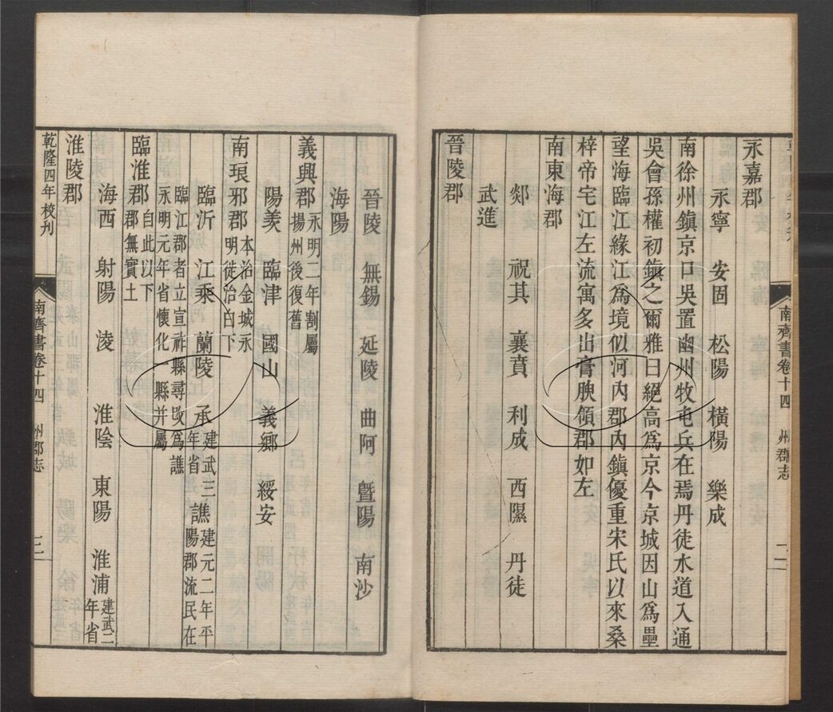 永嘉郡
永寧　安固　松陽　橫陽　樂成
南徐州鎮京口吳置幽州牧屯兵在焉丹徒水道入通
吳會孫權初鎮之爾雅曰絕高為京今京城因山為壘
望海臨江緣江為境似河內郡內鎮優重宋氏以來桑
梓帝宅江左流寓多出膏腴領郡如左
南東海郡
郯　祝其　襄賁　利成　西隰　丹徒
武進
晉陵郡
南齊書卷十四　州郡志　二
晉陵　無錫　延陵　曲阿　暨陽　南沙
海陽
義興郡永明二年割屬揚州後復舊
陽羨　臨津　國山　義鄉　綏安
南琅邪郡本治金城永明徙治白下
臨沂　江乘　蘭陵　承建武三年省　譙建元二年平陽郡流民在
臨江郡者立宣祚縣尋改為譙
永明元年省懷化一縣并屬
臨淮郡自此以下郡無實土
海西　射陽　淩　淮陰　東陽　淮浦建武二年省
淮陵郡
乾隆四年校刊
南齊書卷十四　州郡志　二